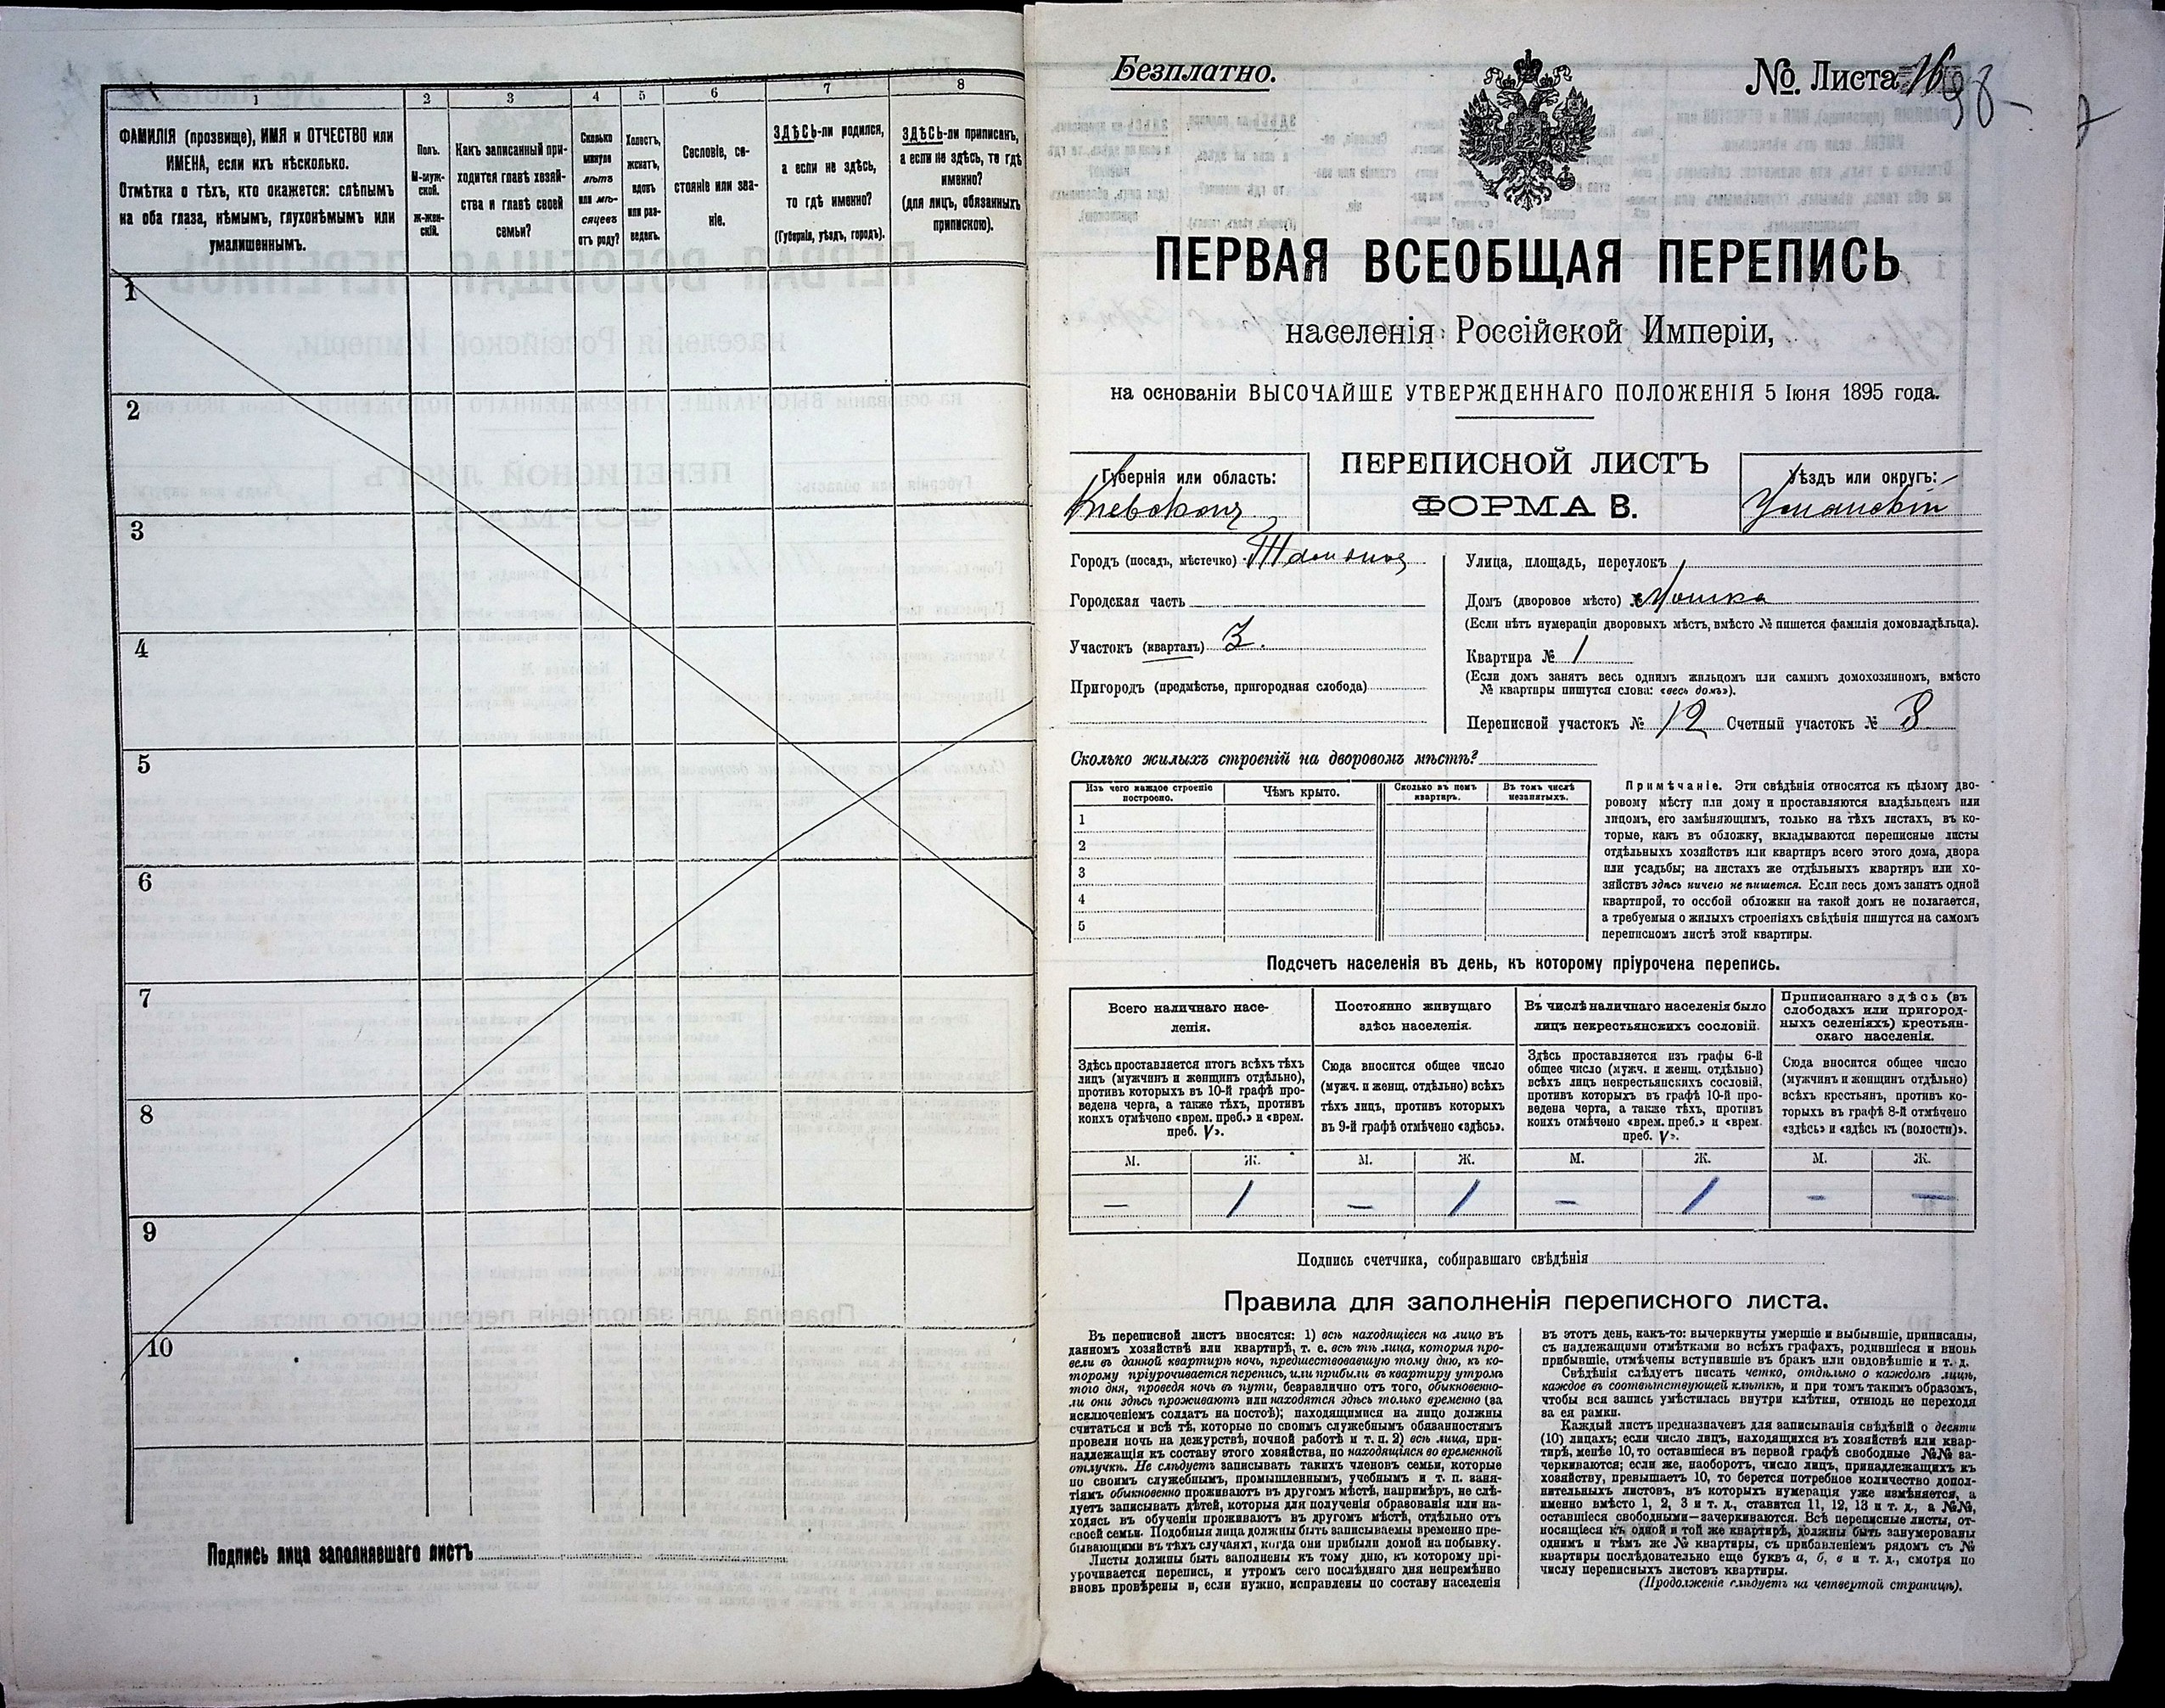 1 2 3 4 5 6 7 8
ФАМИЛІЯ (прозвище), ИМЯ и ОТЧЕСТВО или
ИМЕНА, если ихъ нѣсколько.
Отмѣтка о тѣхъ, кто окажется: слѣпымъ
на оба глаза, нѣмымъ, глухонѣмымъ или
умалишеннымъ.
Полъ.
М-муж-
ской.
Ж-жен-
скій.
Какъ записанный при-
ходится главѣ хозяй-
ства и главѣ своей
семьи?
Сколько
минуло
лѣтъ
или мѣ-
сяцевъ
отъ роду?
Холостъ,
женатъ,
вдовъ
или раз-
веденъ.
Сословіе, со-
стояніе или зва-
ніе.
ЗДѢСЬ-ли родился,
а если не здѣсь,
то гдѣ именно?
(Губернія, уѣздъ, городъ).
ЗДѢСЬ-ли приписанъ,
а если не здѣсь, то гдѣ
именно?
(для лицъ, обязанныхъ
припискою).
1
2
3
4
5
6
7
8
9
10
Подпись лица заполнявшаго листъ
Безплатно.
№. Листа 16
98
ПЕРВАЯ ВСЕОБЩАЯ ПЕРЕПИСЬ
населенія Россійской Имперіи,
на основаніи ВЫСОЧАЙШЕ УТВЕРЖДЕННАГО ПОЛОЖЕНІЯ 5 Іюня 1895 года.
Губернія или область:
Кіевская
ПЕРЕПИСНОЙ ЛИСТЪ
ФОРМА В.
Уѣздъ или округъ:
Уманскій
Городъ (посадъ, мѣстечко)
Городская часть
Участокъ (кварталъ) 3.
Пригородъ (предмѣстье, пригородная слобода)
Улица, площадь, переулокъ
Домъ (дворовое мѣсто) № Мошка
(Если нѣтъ нумераціи дворовыхъ мѣстъ, вмѣсто № пишется фамилія домовладѣльца).
Квартира № 1
(Если домъ занятъ весь однимъ жильцомъ или самимъ домохозяиномъ, вмѣсто
№ квартиры пишутся слова: «весь домъ»).
Переписной участокъ № 12 Счетный участокъ № 8
Сколько жилыхъ строеній на дворовомъ мѣстѣ?
Изъ чего каждое строеніе
построено.
Чѣмъ крыто.
Сколько въ немъ
квартиръ.
Въ томъ числѣ
незанятыхъ.
1
2
3
4
5
Примѣчаніе. Эти свѣдѣнія относятся къ цѣлому дво-
ровому мѣсту или дому и проставляются владѣльцемъ или
лицомъ, его замѣняющимъ, только на тѣхъ листахъ, въ ко-
торые, какъ въ обложку, вкладываются переписные листы
отдѣльныхъ хозяйствъ или квартиръ всего этого дома, двора
или усадьбы; на листахъ же отдѣльныхъ квартиръ или хо-
зяйствъ здѣсь ничего не пишется. Если весь домъ занятъ одной
квартирой, то особой обложки на такой домъ не полагается,
а требуемыя о жилыхъ строеніяхъ свѣдѣнія пишутся на самомъ
переписномъ листѣ этой квартиры.
Подсчетъ населенія въ день, къ которому пріурочена перепись.
Всего наличнаго насе-
ленія.
Здѣсь проставляется итогъ всѣхъ тѣхъ
лицъ (мужчинъ и женщинъ отдѣльно),
противъ которыхъ въ 10-й графѣ про-
ведена черта, а также тѣхъ, противъ
коихъ отмѣчено «врем. преб.» и «врем.
преб. V».
Постоянно живущаго
здѣсь населенія.
Сюда вносится общее число
(мужч. и женщ. отдѣльно) всѣхъ
тѣхъ лицъ, противъ которыхъ
въ 9-й графѣ отмѣчено «здѣсь».
Въ числѣ наличнаго населенія было
лицъ некрестьянскихъ сословій.
Здѣсь проставляется изъ графы 6-й
общее число (мужч. и женщ. отдѣльно)
всѣхъ лицъ некрестьянскихъ сословій,
противъ которыхъ въ графѣ 10-й про-
ведена черта, а также тѣхъ, противъ
коихъ отмѣчено «врем. преб.» и «врем.
преб. V».
Приписаннаго здѣсь (въ
слободахъ или пригород-
ныхъ селеніяхъ) крестьян-
скаго населенія.
Сюда вносится общее число
(мужчинъ и женщинъ отдѣльно)
всѣхъ крестьянъ, противъ ко-
торыхъ въ графѣ 8-й отмѣчено
«здѣсь» и «здѣсь къ (волости)».
М. Ж. М. Ж. М. Ж. М. Ж.
— 1 — 1 — 1 — —
Подпись счетчика, собиравшаго свѣдѣнія
Правила для заполненія переписного листа.
Въ переписной листъ вносятся: 1) всѣ находящіеся на лицо въ
данномъ хозяйствѣ или квартирѣ, т. е. всѣ тѣ лица, которыя про-
вели въ данной квартирѣ ночь, предшествовавшую тому дню, къ ко-
торому пріурочивается перепись, или прибыли въ квартиру утромъ
того дня, проведя ночь въ пути, безразлично отъ того, обыкновенно-
ли они здѣсь проживаютъ или находятся здѣсь только временно (за
исключеніемъ солдатъ на постоѣ); находящимися на лицо должны
считаться и всѣ тѣ, которые по своимъ служебнымъ обязанностямъ
провели ночь на дежурствѣ, ночной работѣ и т. п. 2) всѣ лица, при-
надлежащія къ составу этого хозяйства, но находящіяся во временной
отлучкѣ. Не слѣдуетъ записывать такихъ членовъ семьи, которые
по своимъ служебнымъ, промышленнымъ, учебнымъ и т. п. заня-
тіямъ обыкновенно проживаютъ въ другомъ мѣстѣ, напримѣръ, не слѣ-
дуетъ записывать дѣтей, которыя для полученія образованія или на-
ходясь въ обученіи проживаютъ въ другомъ мѣстѣ, отдѣльно отъ
своей семьи. Подобныя лица должны быть записываемы временно пре-
бывающими въ тѣхъ случаяхъ, когда они прибыли домой на побывку.
Листы должны быть заполнены къ тому дню, къ которому прі-
урочивается перепись, и утромъ сего послѣдняго дня непремѣнно
вновь провѣрены и, если нужно, исправлены по составу населенія
въ этотъ день, какъ-то: вычеркнуты умершіе и выбывшіе, приписаны,
съ надлежащими отмѣтками во всѣхъ графахъ, родившіеся и вновь
прибывшіе, отмѣчены вступившіе въ бракъ или овдовѣвшіе и т. д.
Свѣдѣнія слѣдуетъ писать четко, отдѣльно о каждомъ лицѣ,
каждое въ соотвѣтствующей клѣткѣ, и при томъ такимъ образомъ,
чтобы вся запись умѣстилась внутри клѣтки, отнюдь не переходя
за ея рамки.
Каждый листъ предназначенъ для записыванія свѣдѣній о десяти
(10) лицахъ; если число лицъ, находящихся въ хозяйствѣ или квар-
тирѣ, менѣе 10, то оставшіеся въ первой графѣ свободные №№ за-
черкиваются; если же, наоборотъ, число лицъ, принадлежащихъ къ
хозяйству, превышаетъ 10, то берется потребное количество допол-
нительныхъ листовъ, въ которыхъ нумерація уже измѣняется, а
именно вмѣсто 1, 2, 3 и т. д., ставится 11, 12, 13 и т. д., а №№,
оставшіеся свободными—зачеркиваются. Всѣ переписные листы, от-
носящіеся къ одной и той же квартирѣ, должны быть занумерованы
однимъ и тѣмъ же № квартиры, съ прибавленіемъ рядомъ съ №
квартиры послѣдовательно еще буквъ а, б, в и т. д., смотря по
числу переписныхъ листовъ квартиры.
(Продолженіе слѣдуетъ на четвертой страницѣ).